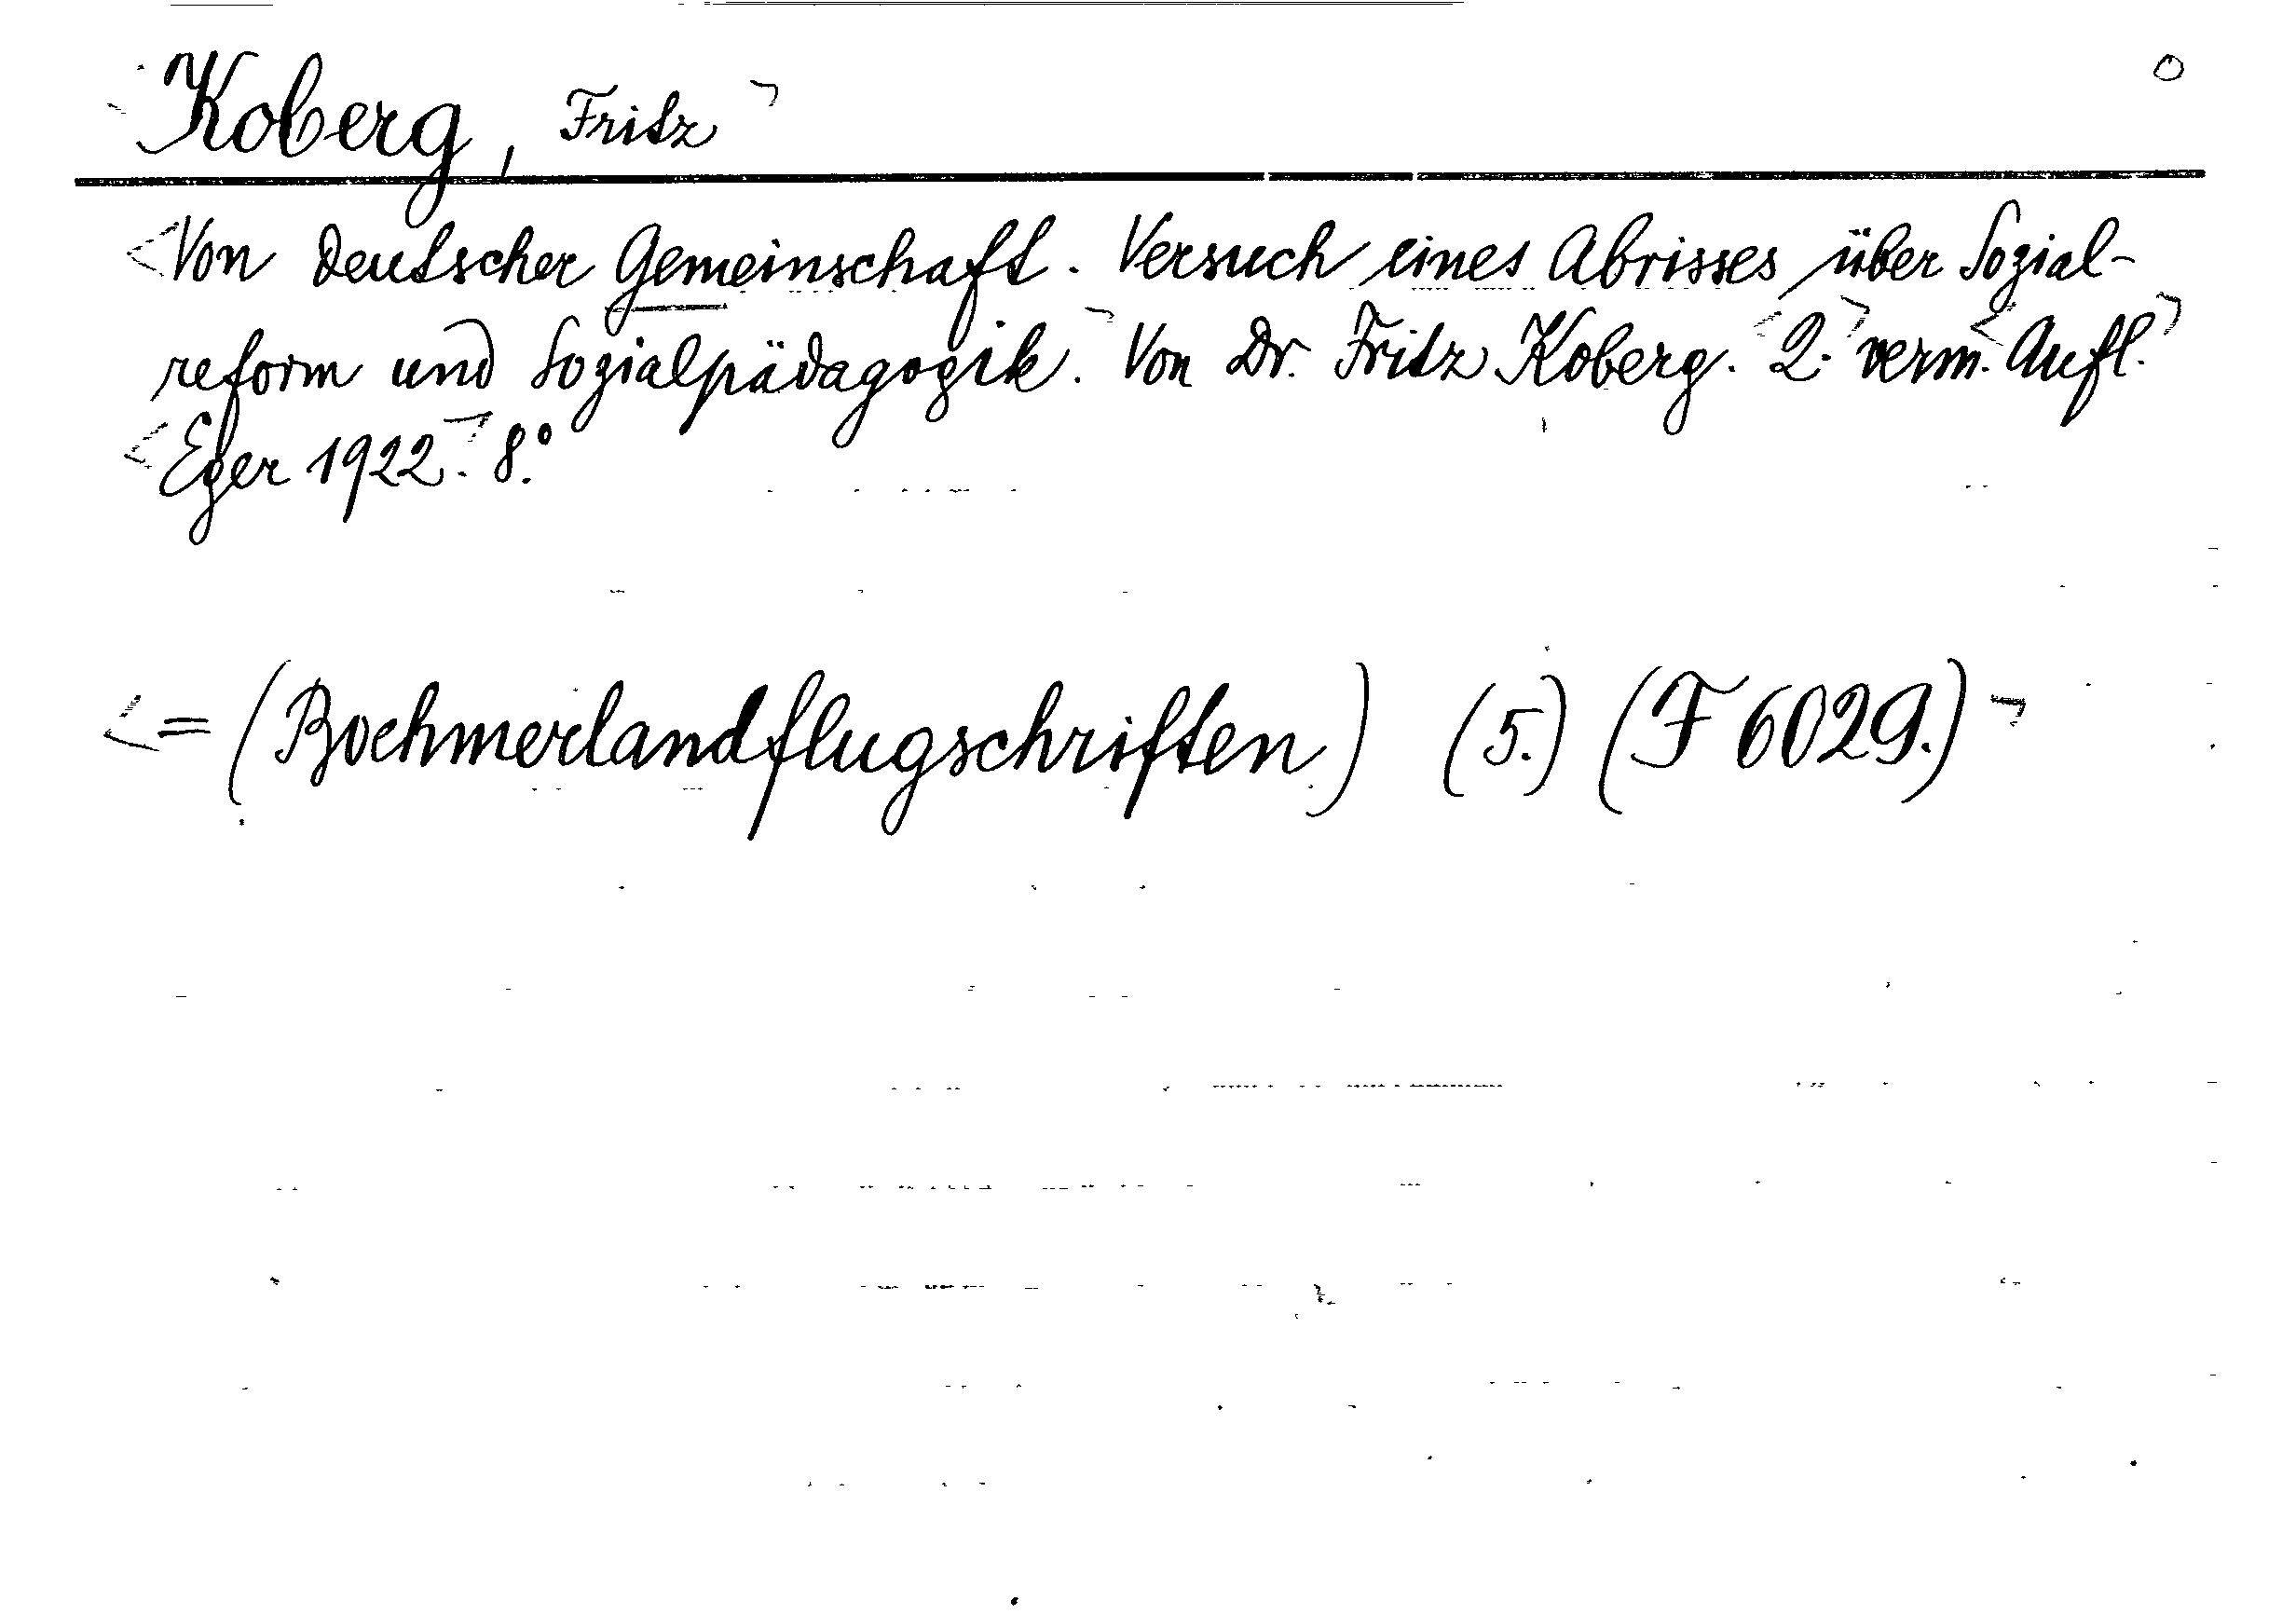 Koberg, Fritz
Von deutscher Gemeinschaft. Versuch eines Abrisses über Sozial-
reform und Sozialpädagogik. Von Dr. Fritz Koberg. 2. verm. Aufl.
Eger 1922. 8°.
= (Boehmerlandflugschriften) (5.) (F 6029.)